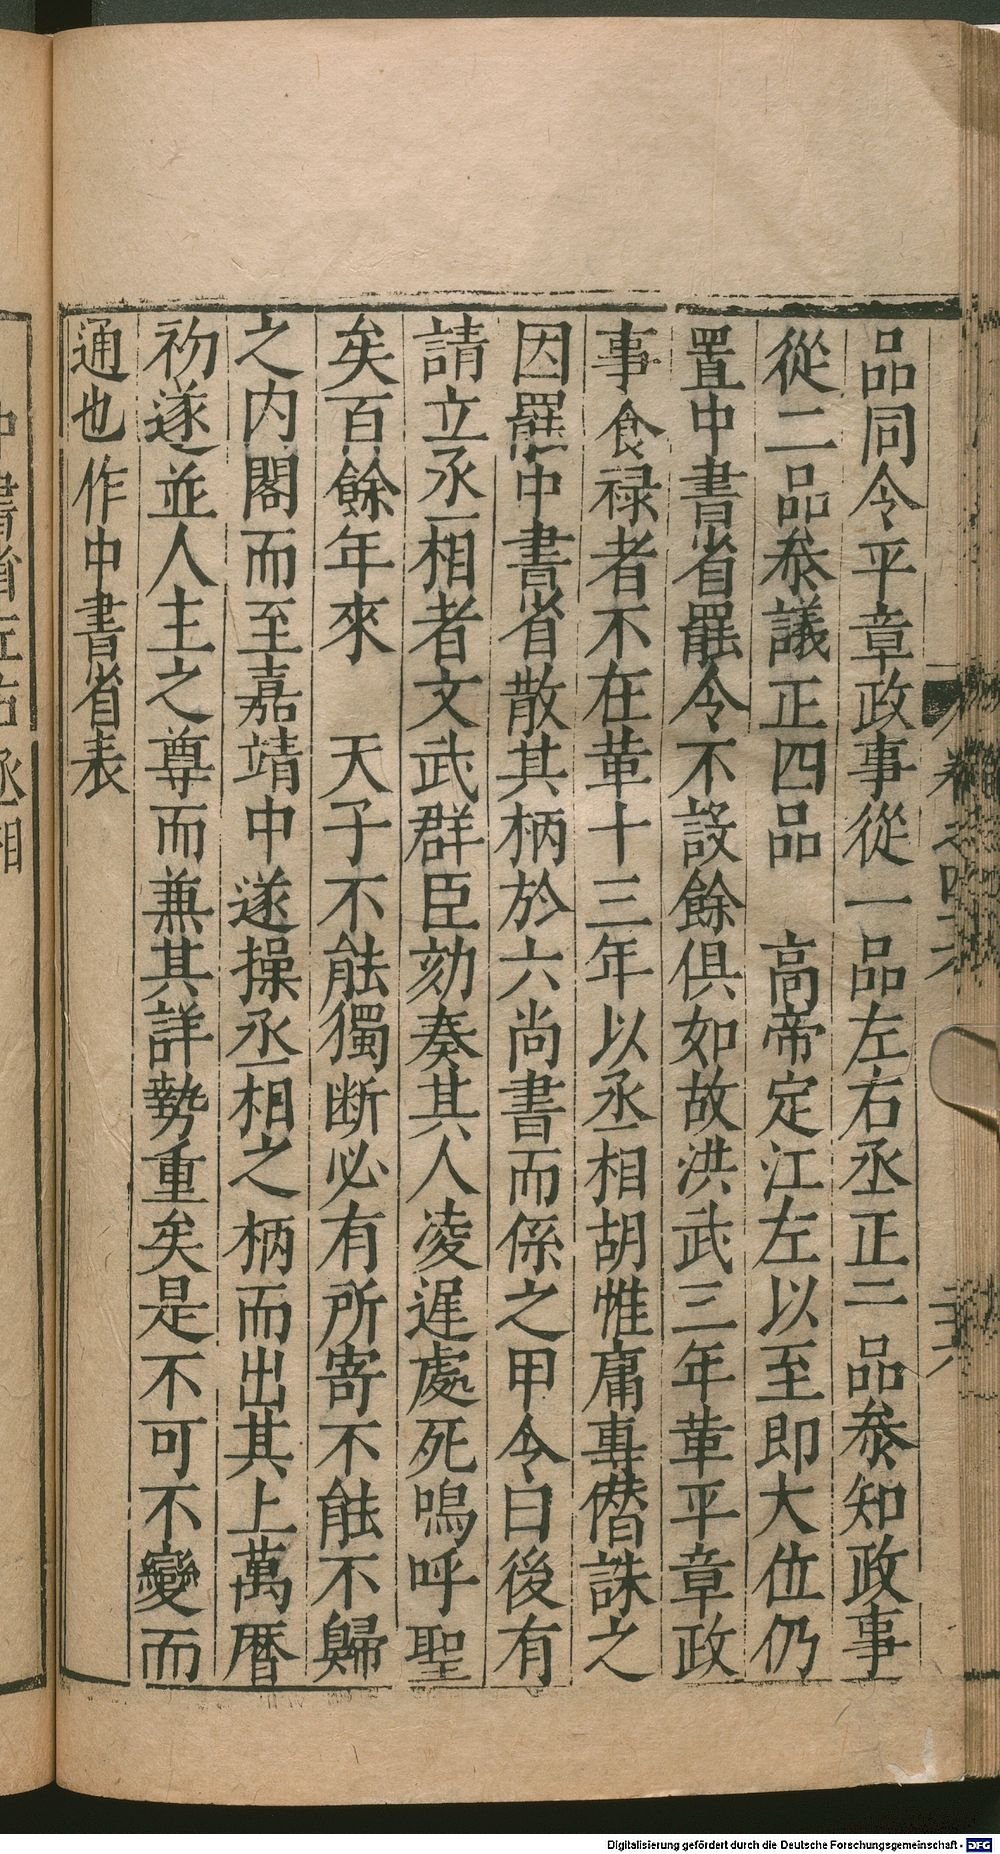 品同令平章政事從一品左右丞正二品叅知政事
從二品叅議正四品　高帝定江左以至即大位仍
置中書省罷令不設餘俱如故洪武三年革平章政
事食禄者不在革十三年以丞相胡惟庸專僭誅之
因罷中書省散其柄於六尚書而係之甲令曰後有
請立丞相者文武群臣劾奏其人凌遲處死嗚呼聖
矣百餘年來　天子不能獨断必有所寄不能不歸
之内閣而至嘉靖中遂操丞相之柄而出其上萬曆
初遂並人主之尊而兼其詳勢重矣是不可不變而
通也作中書省表
卷之四十六
中書省左右丞相
Digitalisierung gefördert durch die Deutsche Forschungsgemeinschaft - DFG